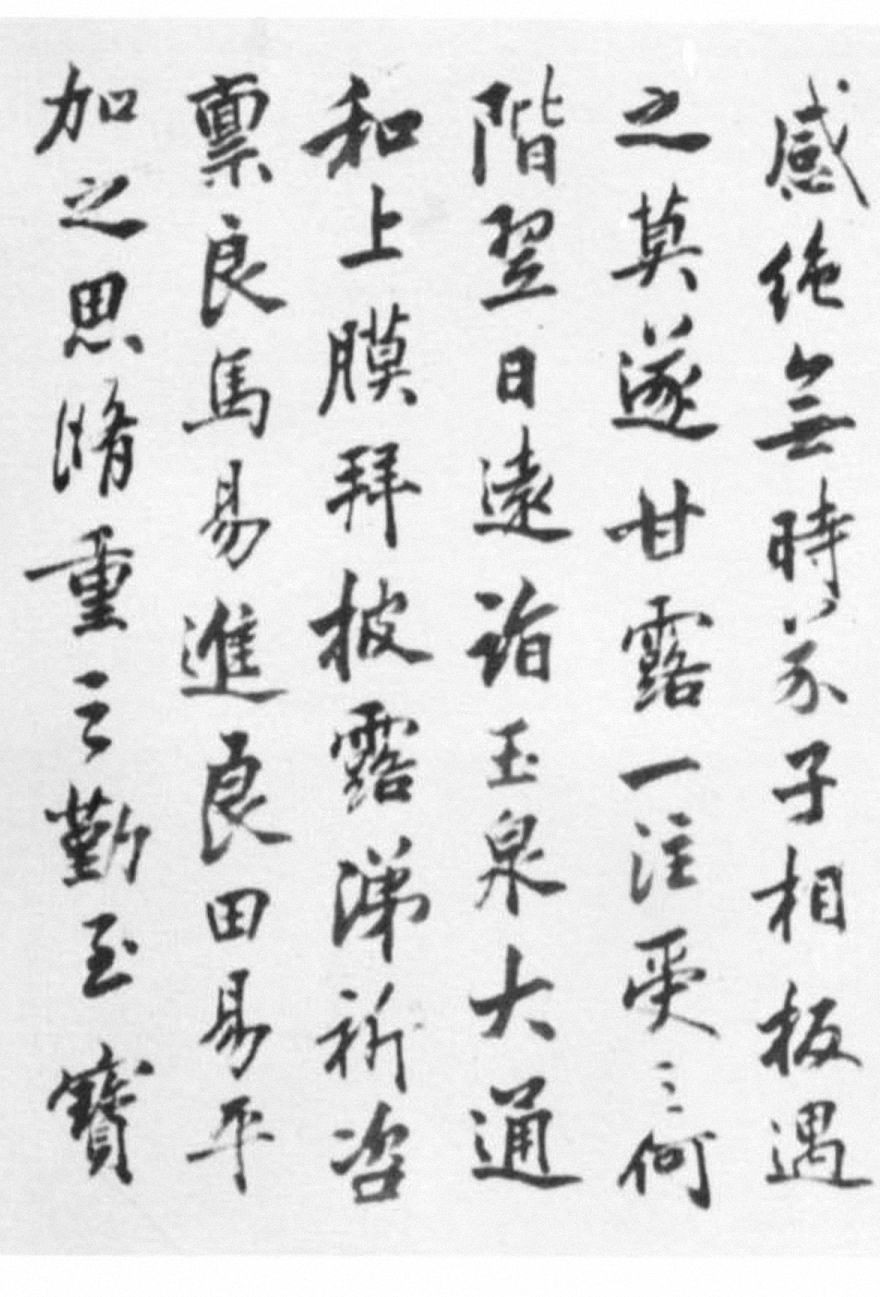 感絶無時莂子相板遇
之莫遂甘露一注受々何
階翌日遠詣玉泉大通
和上膜拜披露涕祈咨
禀良馬易進良田易平
加之思脩重之勤至寶